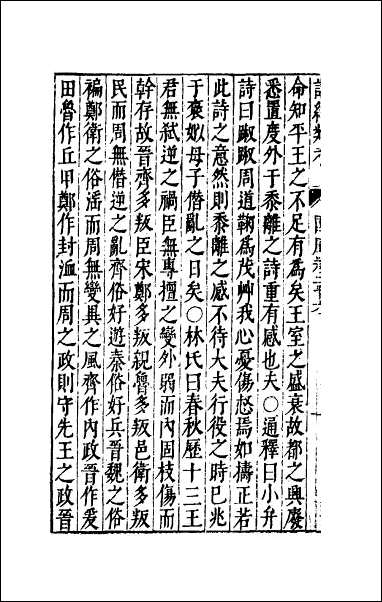 命知平王之不足有為矣王室之盛衰故都之興廢
悉置度外于黍離之詩重有感也夫○通釋曰小弁
詩曰踧踧周道鞫為茂艸我心憂傷惄焉如擣正若
此詩之意然則黍離之感不待大夫行役之時已兆
于褒姒母子僭亂之日矣○林氏曰春秋歷十三王
君無弑逆之禍臣無專擅之變外弱而內固枝傷而
幹存故晉齊多叛臣宋鄭多叛親魯多叛邑衛多叛
民而周無僭逆之亂齊俗好遊秦俗好兵晉魏之俗
褊鄭衛之俗滛而周無變異之風齊作內政晉作爰
田魯作丘甲鄭作封洫而周之政則守先王之政晉